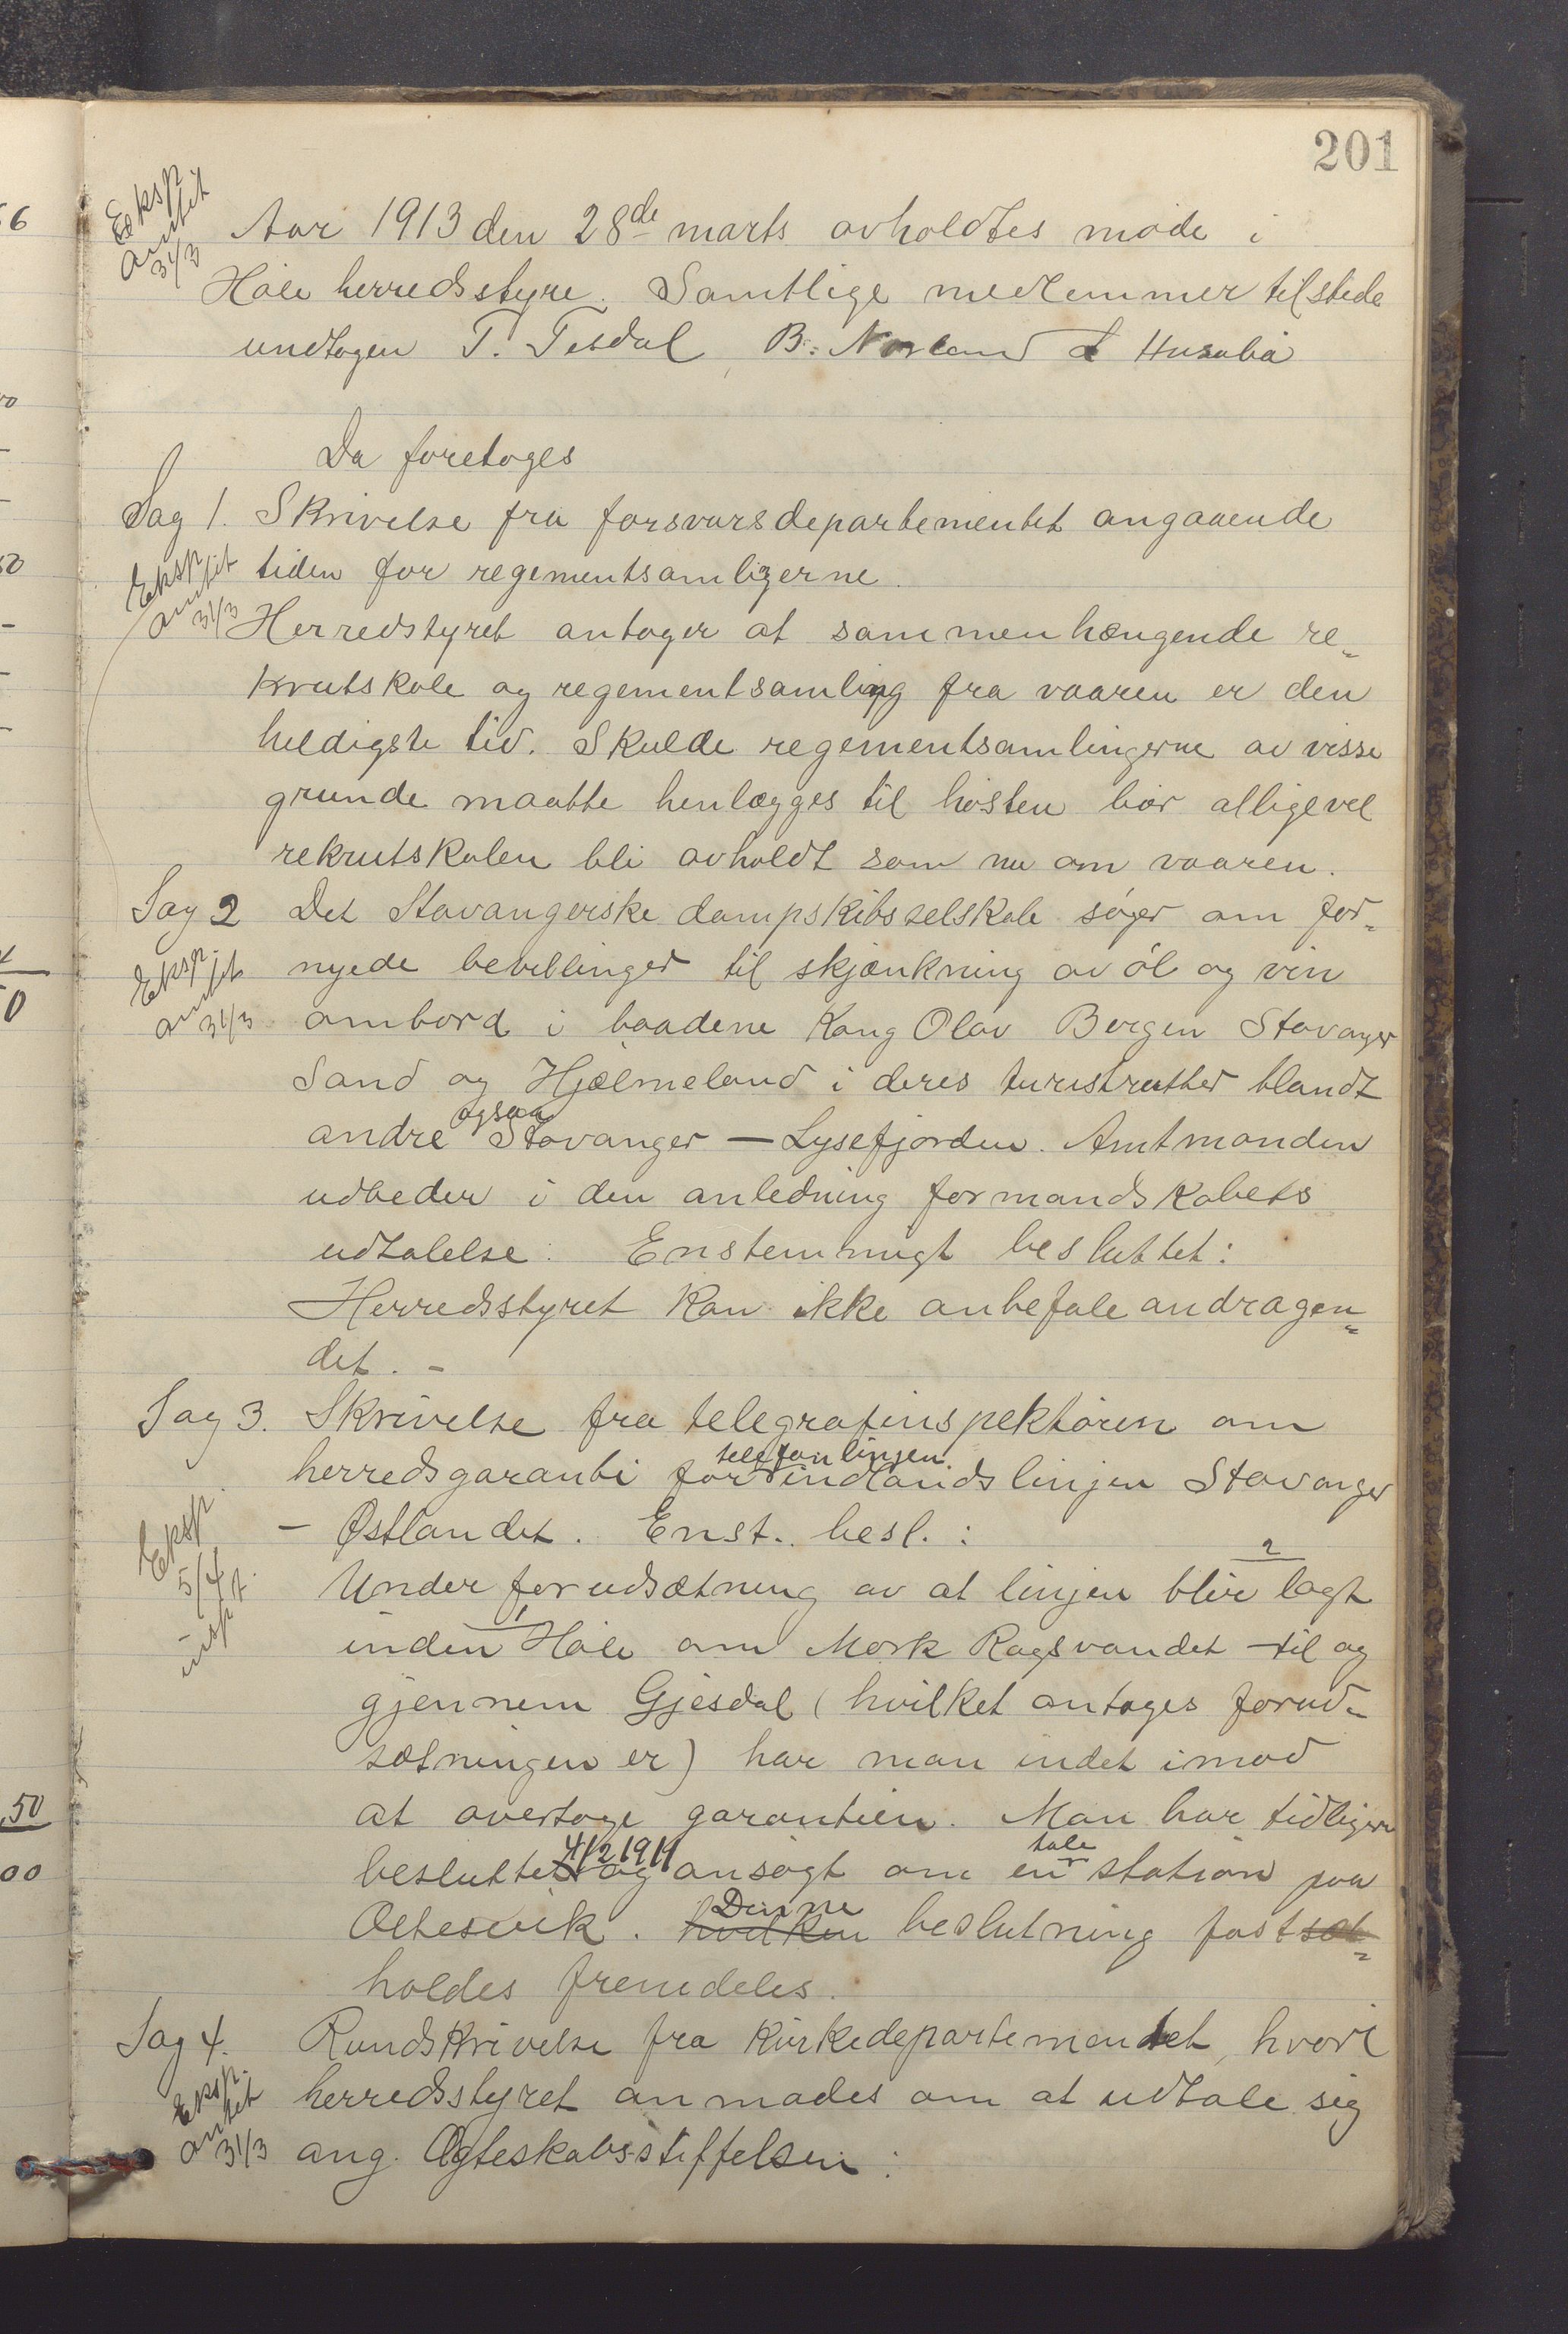 201
Eksp.
amtet
31/3
Aar 1913 den 28de marts avholdtes møde i
Høle herredsstyre. Samtlige medlemmer tilstede
undtagen T. Tesdal, B. Norland & Husabø
Da foretoges
Sag 1. Skrivelse fra forsvarsdepartementet angaaende
Eksp. amtet 31/3
tiden for regementsamligerne.
Herredstyret antager at sammenhængende re-
krutskole og regementsamling fra vaaren er den
heldigste tid. Skulde regementsamlingerne av visse
grunde maatte henlægges til høsten bør alligevel
rekrutskolen bli avholdt som nu om vaaren.
Sag 2 Det Stavangerske dampskibsselskab søger om for-
Eksp. amtet 31/3
nyede bevillinger til skjænkning av øl og vin
ombord i baadene Kong Olav Bergen Stavanger
Sand og Hjelmeland i deres turistrutter blandt
andre ogsaa Stavanger — Lysefjorden. Amtmanden
udbeder i den anledning formandskabets
udtalelse: Enstemmigt besluttet:
Herredsstyret kan ikke anbefale andragen-
det. -
Sag 3. Skrivelse fra telegrafinspektøren om
herredsgaranti for telefonlinjen indlandslinjen Stavanger
Eksp 5/4 t. insp
- Østlandet. Enst. besl.:
Under forudsætning av at linjen blir 2 lagt
inden 1 Høle om Mork Ragsvandet til og
gjennem Gjesdal (hvilket antages forud-
sætningen er) har man indet imod
at overtage garantien. Man har tidligere
besluttet 4/2 1911 og ansøgt om en tale station paa
Oltesvik. hvilken Denne beslutning fastsæt-
holdes fremdeles.
Sag 4. Rundskrivelse fra Kirkedepartementet, hvori
Eksp. amtet 31/3
herredsstyret anmodes om at udtale sig
ang. Ægteskabsstiftelsen: